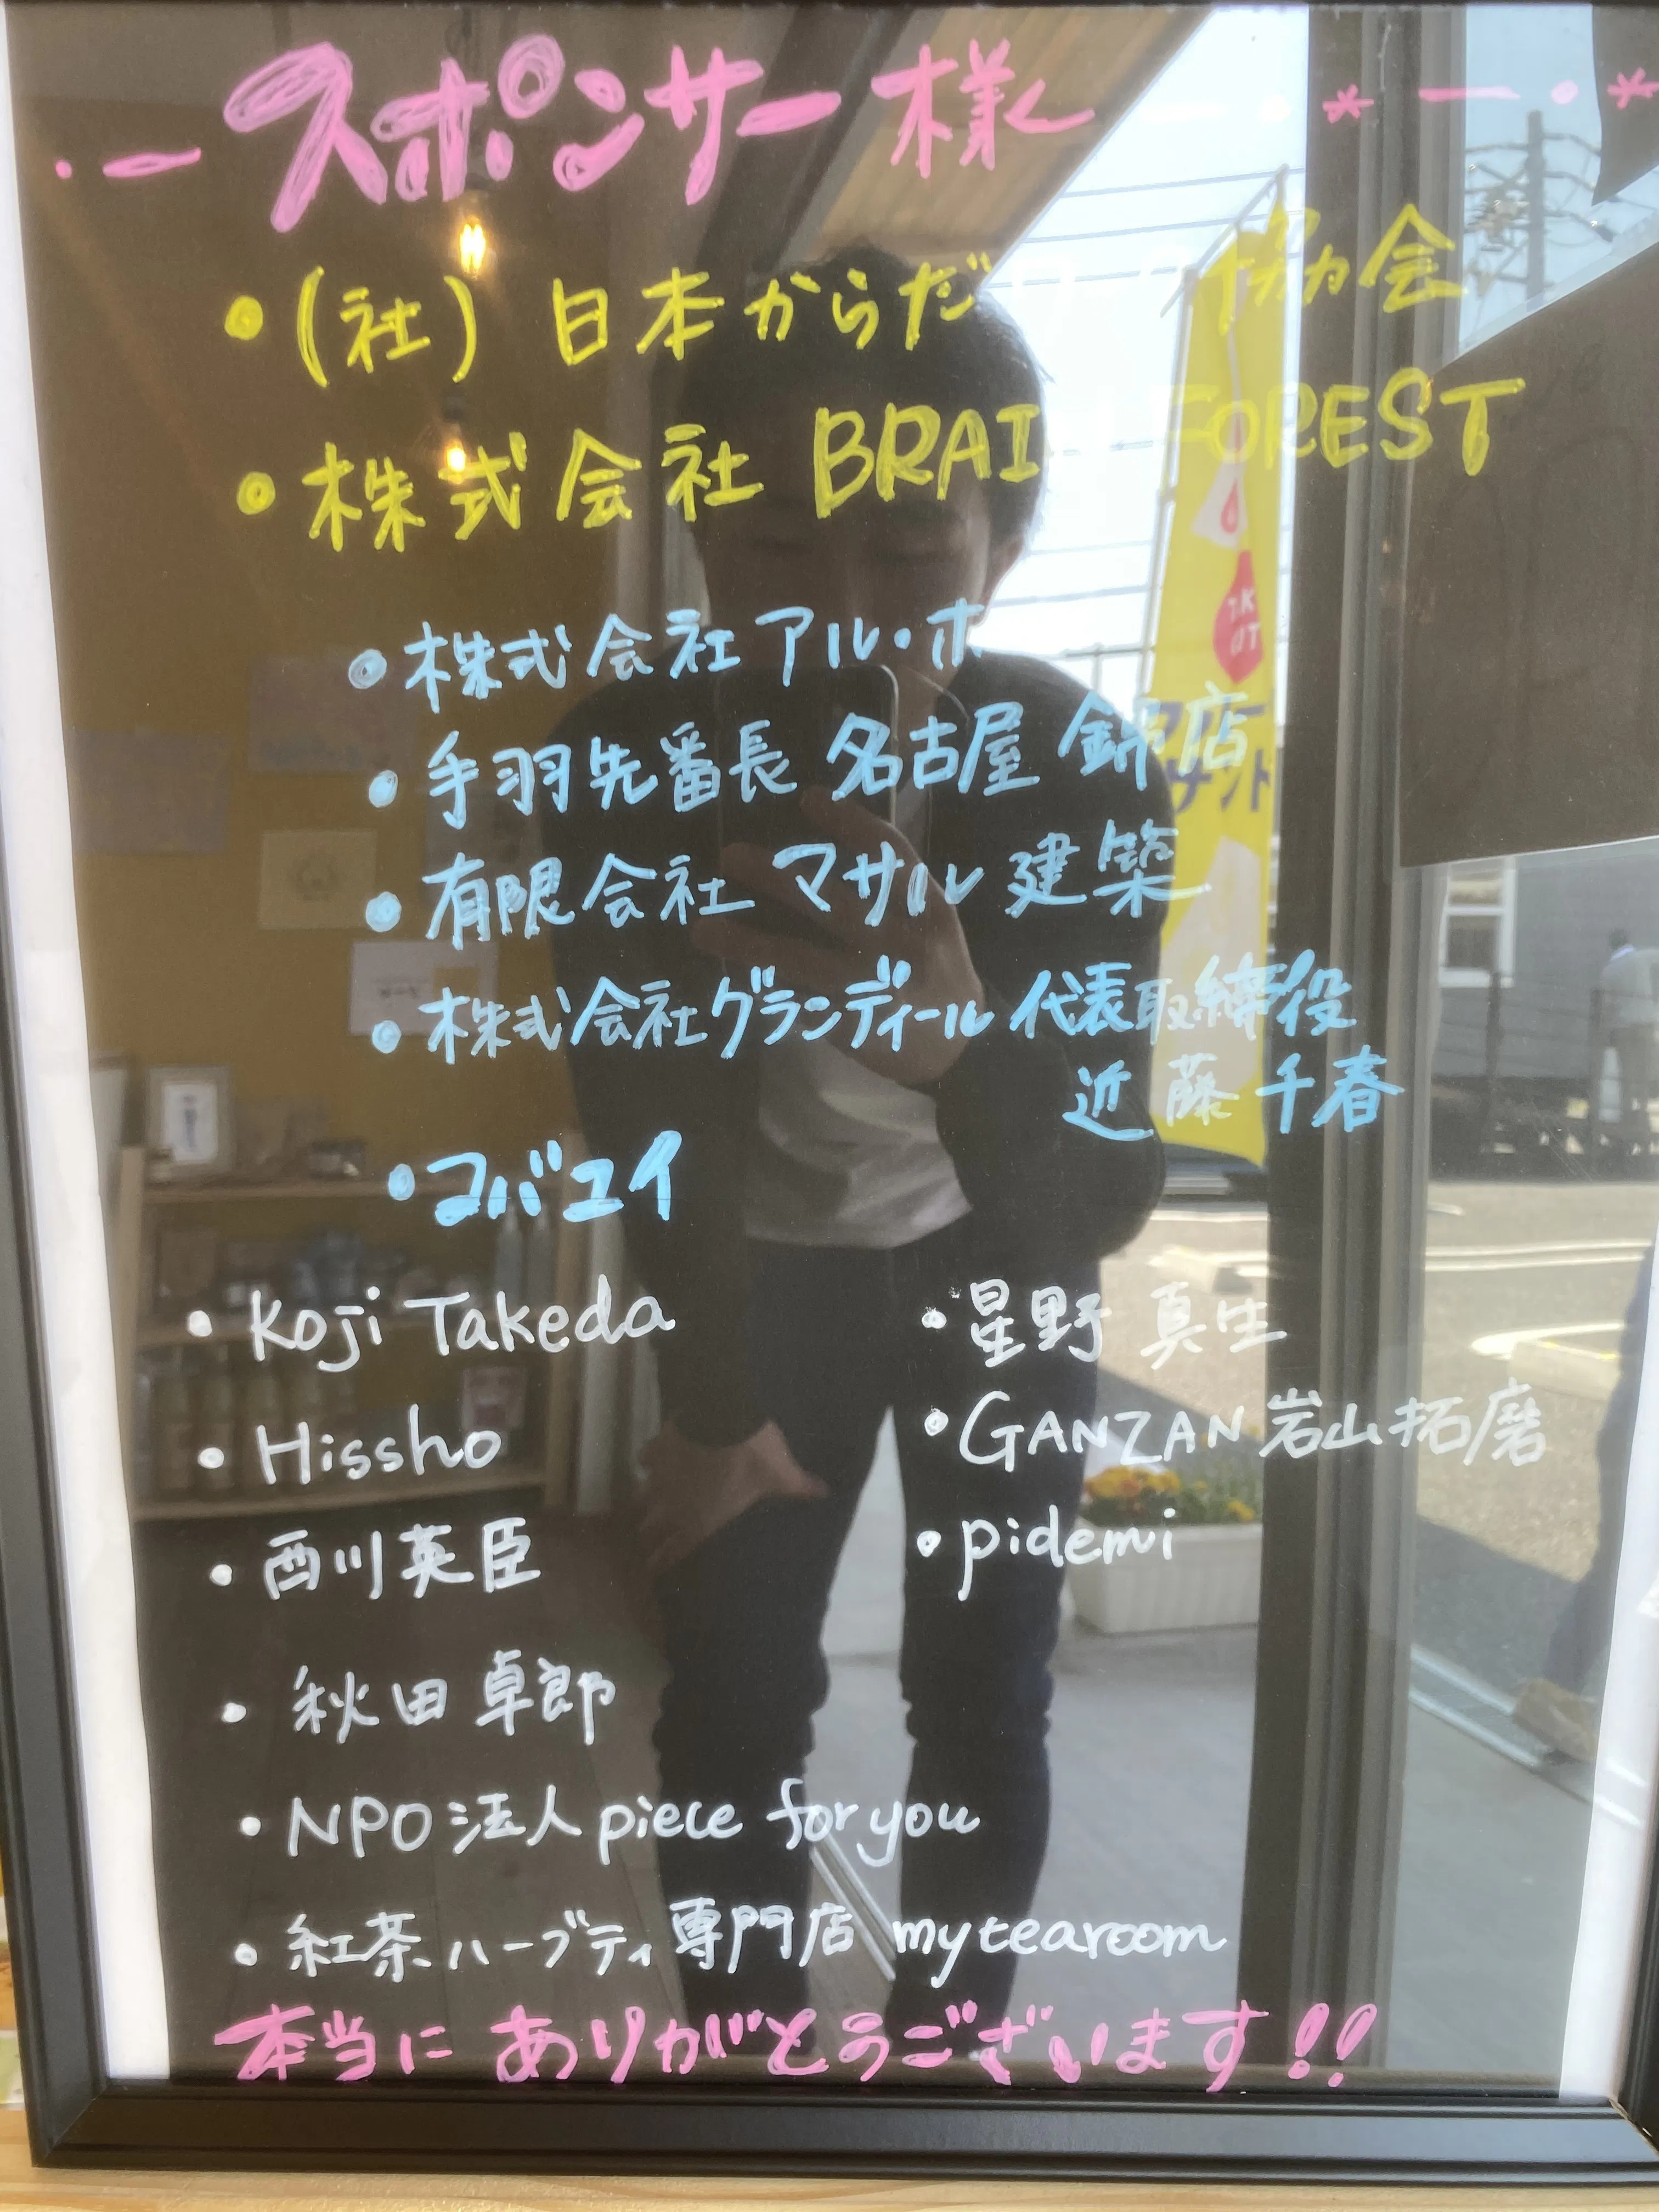 スポンサー様
・(社)日本からだ 協会
・株式会社 BRAI FOREST
・株式会社アル・ホ
・手羽先番長 名古屋 錦店
・有限会社 マサル建築
・株式会社グランディール 代表取締役
近藤千春
・コバユイ
・Koji Takeda
・Hissho
・西川英臣
・秋田卓郎
・NPO法人piece for you
・紅茶ハーブティ専門店 mytearoom
・星野 真生
・GANZAN 岩山拓磨
・pidemi
本当にありがとうございます!!